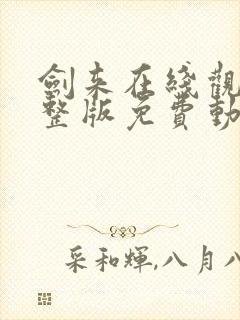 劍来在綫觀
整版免費動
采和輝,八月八